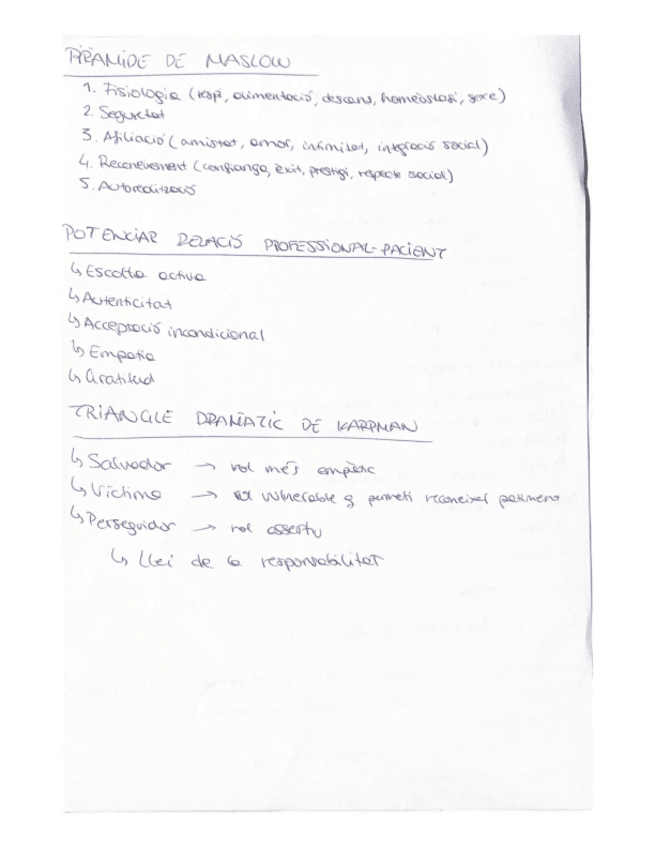 PIRAMIDE DE MASLOW
1. Fisiologia (resp, alimentació, descans, homeòstasi, sexe)
2. Seguretat
3. Afiliació (amistat, amor, intimitat, integració social)
4. Reconeixement (confiança, èxit, prestigi, respecte social)
5. Autorealització
POTENCIAR RELACIÓ PROFESSIONAL-PACIENT
↳ Escolta activa
↳ Autenticitat
↳ Acceptació incondicional
↳ Empatia
↳ Gratitud
TRIANGLE DRAMÀTIC DE KARPMAN
↳ Salvador → rol més empàtic
↳ Víctima → rol vulnerable q permeti reconeixer patiment
↳ Perseguidor → rol assertiu
↳ Llei de la responsabilitat